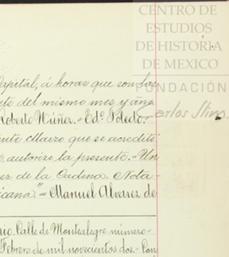 CENTRO DE
ESTUDIOS
DE HISTORIA
DE MEXICO
FUNDACIÓN
Carlos Slim.
Capital, á horas que son las
del mismo mes y año
Rob. de Núñez. Edo. Toledo.
ente Mayo que se acredite
autorizo la presente. Un
ez de la Cadena. Nota
icana". Manuel Alvarez de
Calle de Montealegre número
Febrero de mil novecientos dos. Con